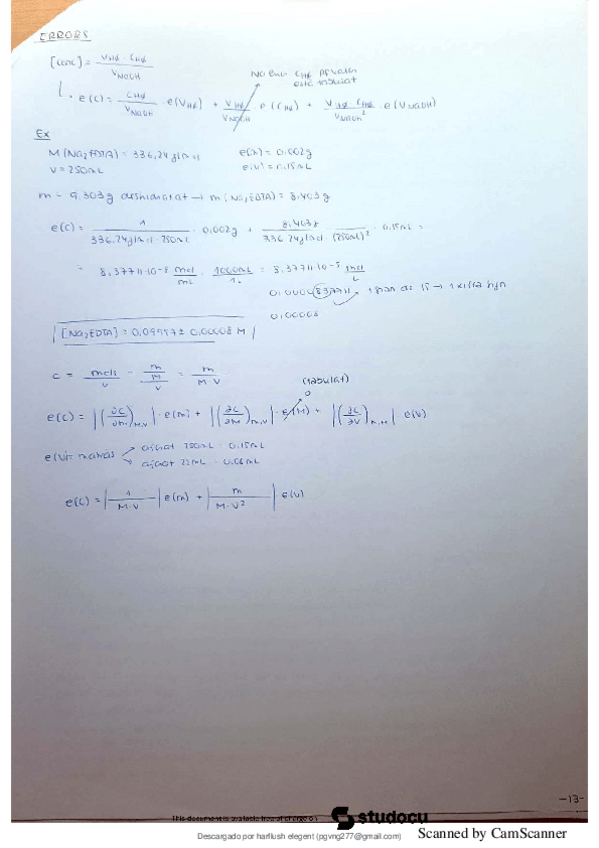 ERRORS
[conc] = V_HX · C_HX / V_NaOH
e(C) = C_HX / V_NaOH · e(V_HX) + V_HX / V_NaOH · e(C_HX) + V_HX · C_HX / V_NaOH² · e(V_NaOH)
Ex
M(Na₂EDTA) = 336,24 g/mol e(m) = 0.002g
V = 250mL e(v) = 0.15mL
m = 9.303g deshidratat → m(Na₂EDTA) = 8.403g
e(c) = 1 / 336.24g/mol · 250mL · 0.002g + 8.403g / 336.24g/mol · (250mL)² · 0.15mL =
= 8.37711·10⁻⁸ mol/mL · 1000mL / 1L = 8.37711·10⁻⁵ mol/L
0.0000837711
0.00008
[Na₂EDTA] = 0.09997 ± 0.00008 M
c = mols / V = m/M / V = m / M·V
(tabulat)
0
e(c) = |(∂C/∂m)M,V| · e(m) + |(∂C/∂M)m,V| · e(M) + |(∂C/∂V)m,M| e(V)
aforat 250mL · 0.15mL
aforat 25mL · 0.06mL
e(c) = |1 / M·V| e(m) + |m / M·V²| e(v)
-13-
This document is available free of charge on studocu
Descargado por harllush elegent (pgvng277@gmail.com)
Scanned by CamScanner